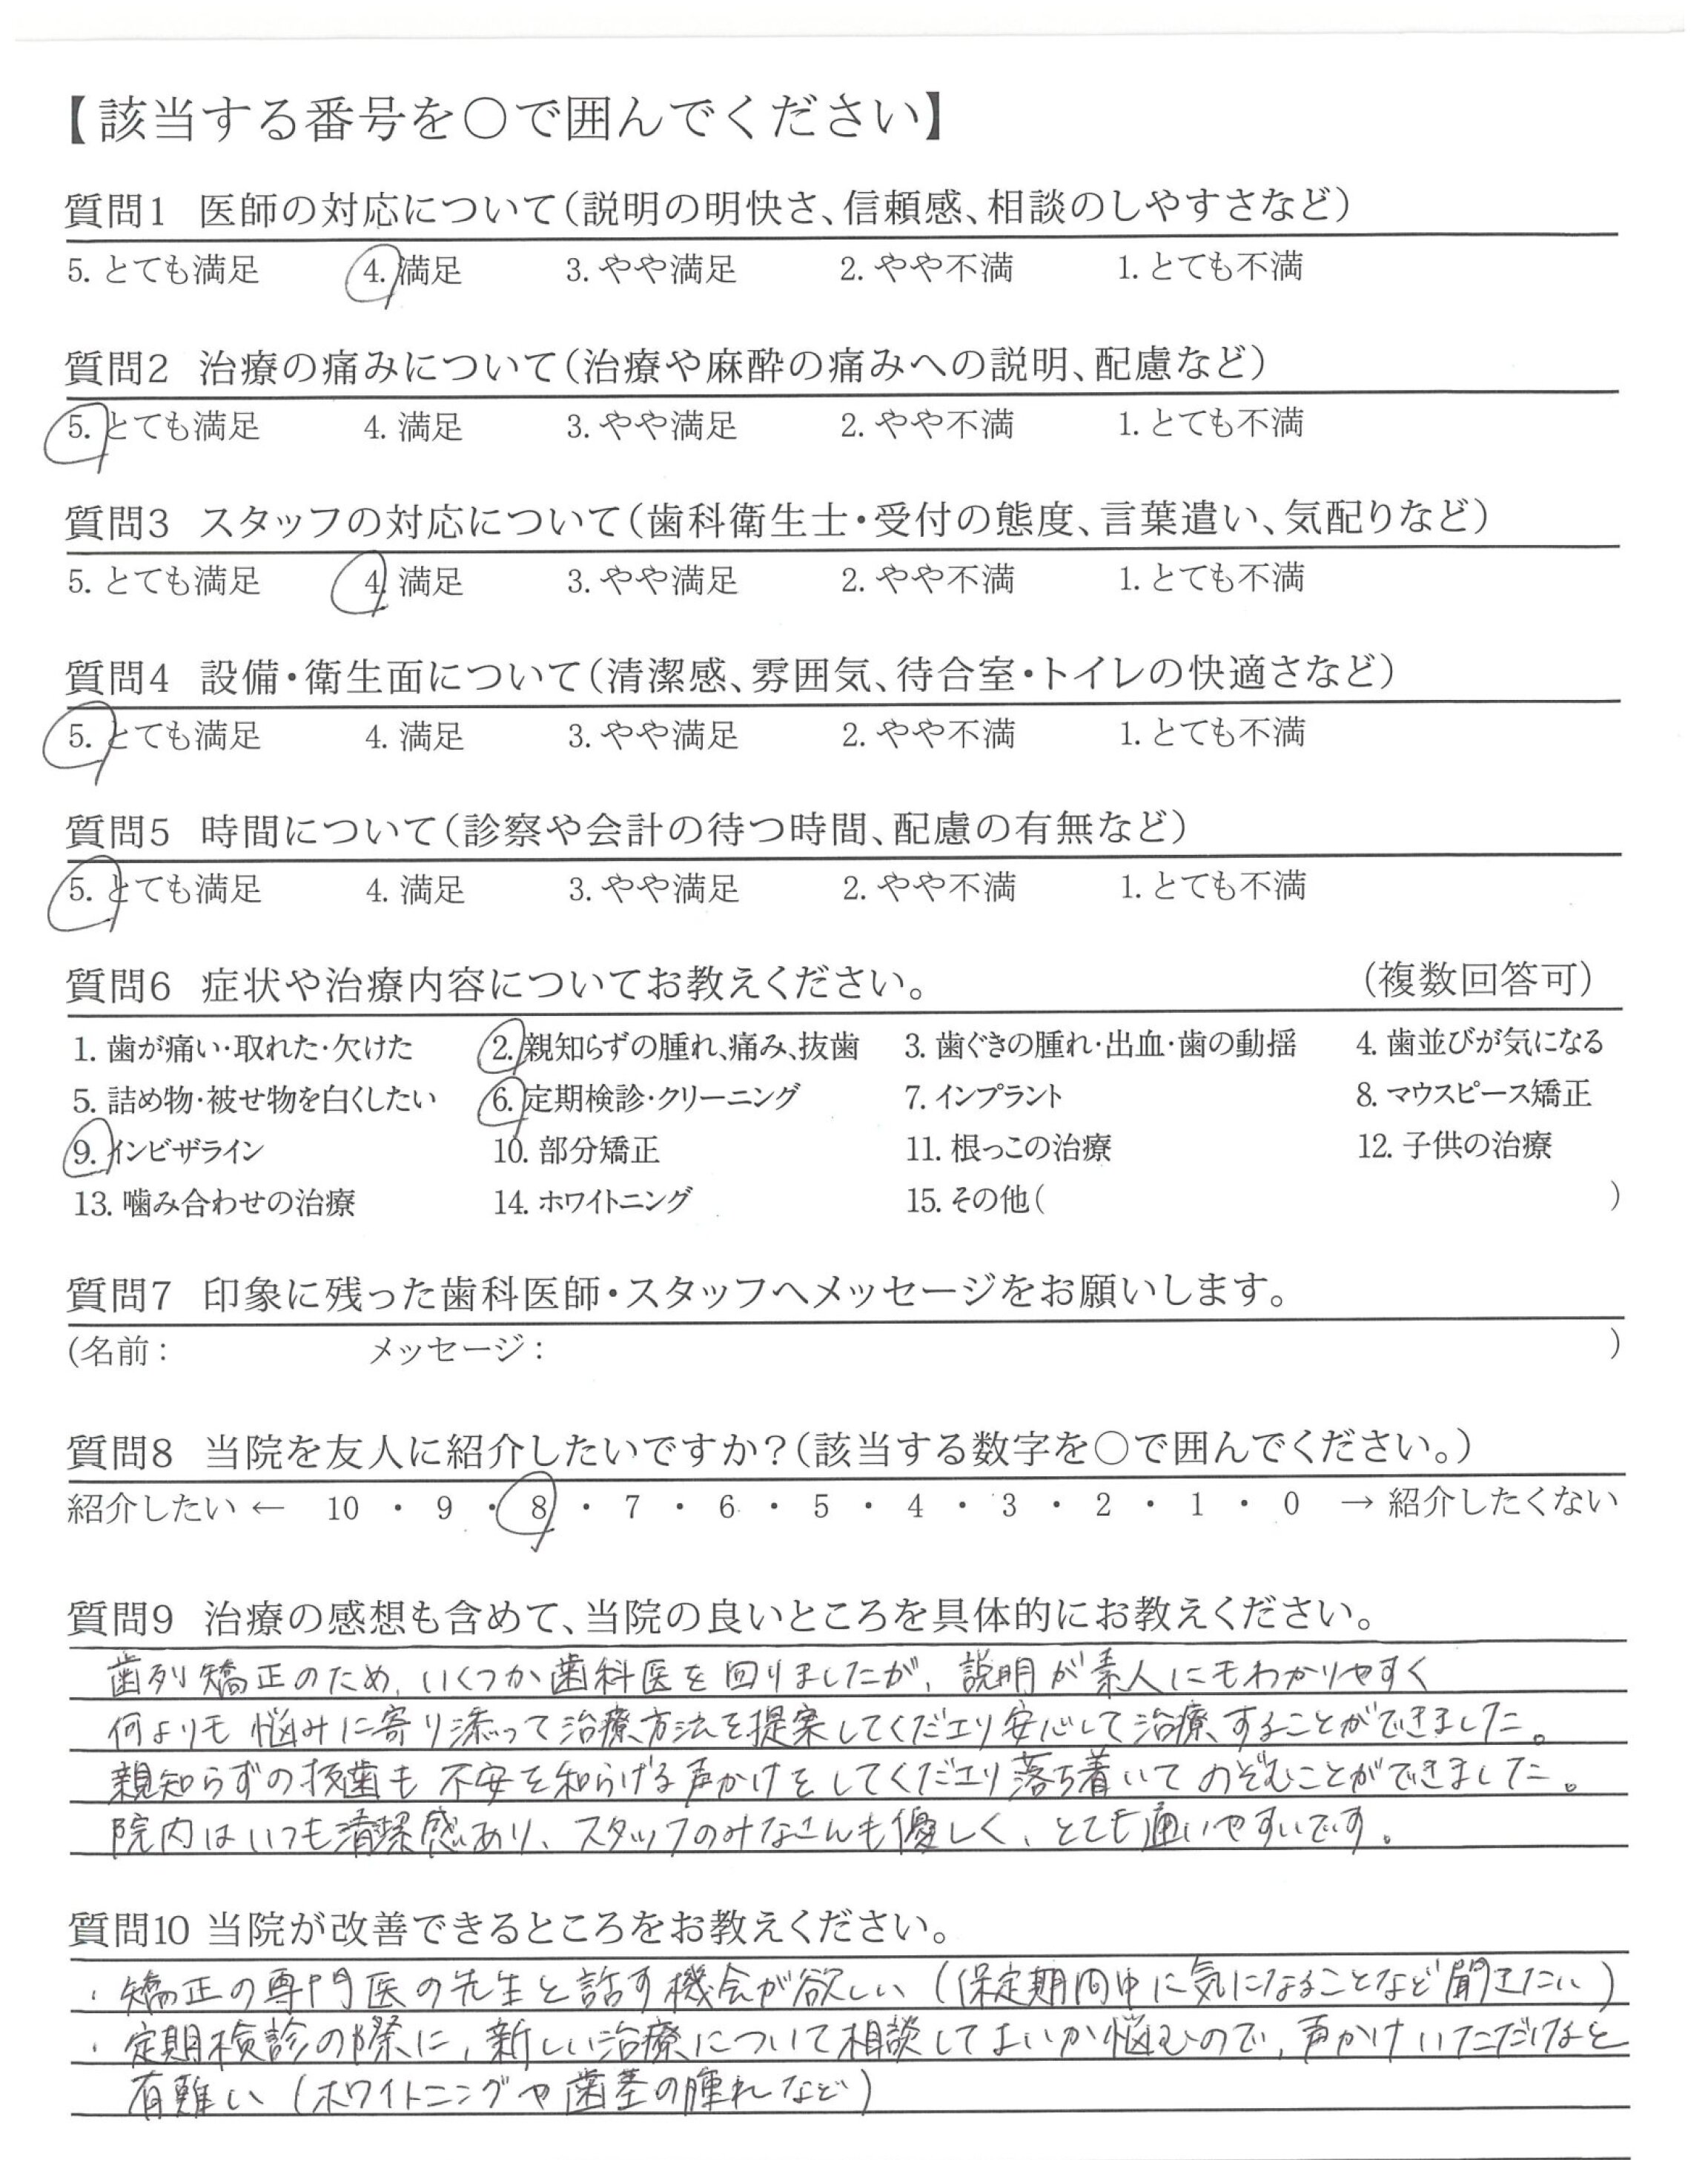 【該当する番号を○で囲んでください】
質問1 医師の対応について(説明の明快さ、信頼感、相談のしやすさなど)
5. とても満足 4. 満足 3. やや満足 2. やや不満 1. とても不満
質問2 治療の痛みについて(治療や麻酔の痛みへの説明、配慮など)
5. とても満足 4. 満足 3. やや満足 2. やや不満 1. とても不満
質問3 スタッフの対応について(歯科衛生士・受付の態度、言葉遣い、気配りなど)
5. とても満足 4. 満足 3. やや満足 2. やや不満 1. とても不満
質問4 設備・衛生面について(清潔感、雰囲気、待合室・トイレの快適さなど)
5. とても満足 4. 満足 3. やや満足 2. やや不満 1. とても不満
質問5 時間について(診察や会計の待つ時間、配慮の有無など)
5. とても満足 4. 満足 3. やや満足 2. やや不満 1. とても不満
質問6 症状や治療内容についてお教えください。 (複数回答可)
1. 歯が痛い・取れた・欠けた 2. 親知らずの腫れ、痛み、抜歯 3. 歯ぐきの腫れ・出血・歯の動揺 4. 歯並びが気になる
5. 詰め物・被せ物を白くしたい 6. 定期検診・クリーニング 7. インプラント 8. マウスピース矯正
9. インビザライン 10. 部分矯正 11. 根っこの治療 12. 子供の治療
13. 噛み合わせの治療 14. ホワイトニング 15. その他( )
質問7 印象に残った歯科医師・スタッフへメッセージをお願いします。
(名前: メッセージ: )
質問8 当院を友人に紹介したいですか?(該当する数字を○で囲んでください。)
紹介したい ← 10 ・ 9 ・ 8 ・ 7 ・ 6 ・ 5 ・ 4 ・ 3 ・ 2 ・ 1 ・ 0 → 紹介したくない
質問9 治療の感想も含めて、当院の良いところを具体的にお教えください。
歯列矯正のため、いくつか歯科医を回りましたが、説明が素人にもわかりやすく
何よりも悩みに寄り添って治療方法を提案してくださり安心して治療することができました。
親知らずの抜歯も不安を和らげる声かけをしてくださり落ち着いてのぞむことができました。
院内はいつも清潔感あり、スタッフのみなさんも優しく、とても通いやすいです。
質問10 当院が改善できるところをお教えください。
・矯正の専門医の先生と話す機会が欲しい(保定期間中に気になることなど聞きたい)
・定期検診の際に、新しい治療について相談してよいか悩むので、声かけいただけると
有難い(ホワイトニングや歯茎の腫れなど)